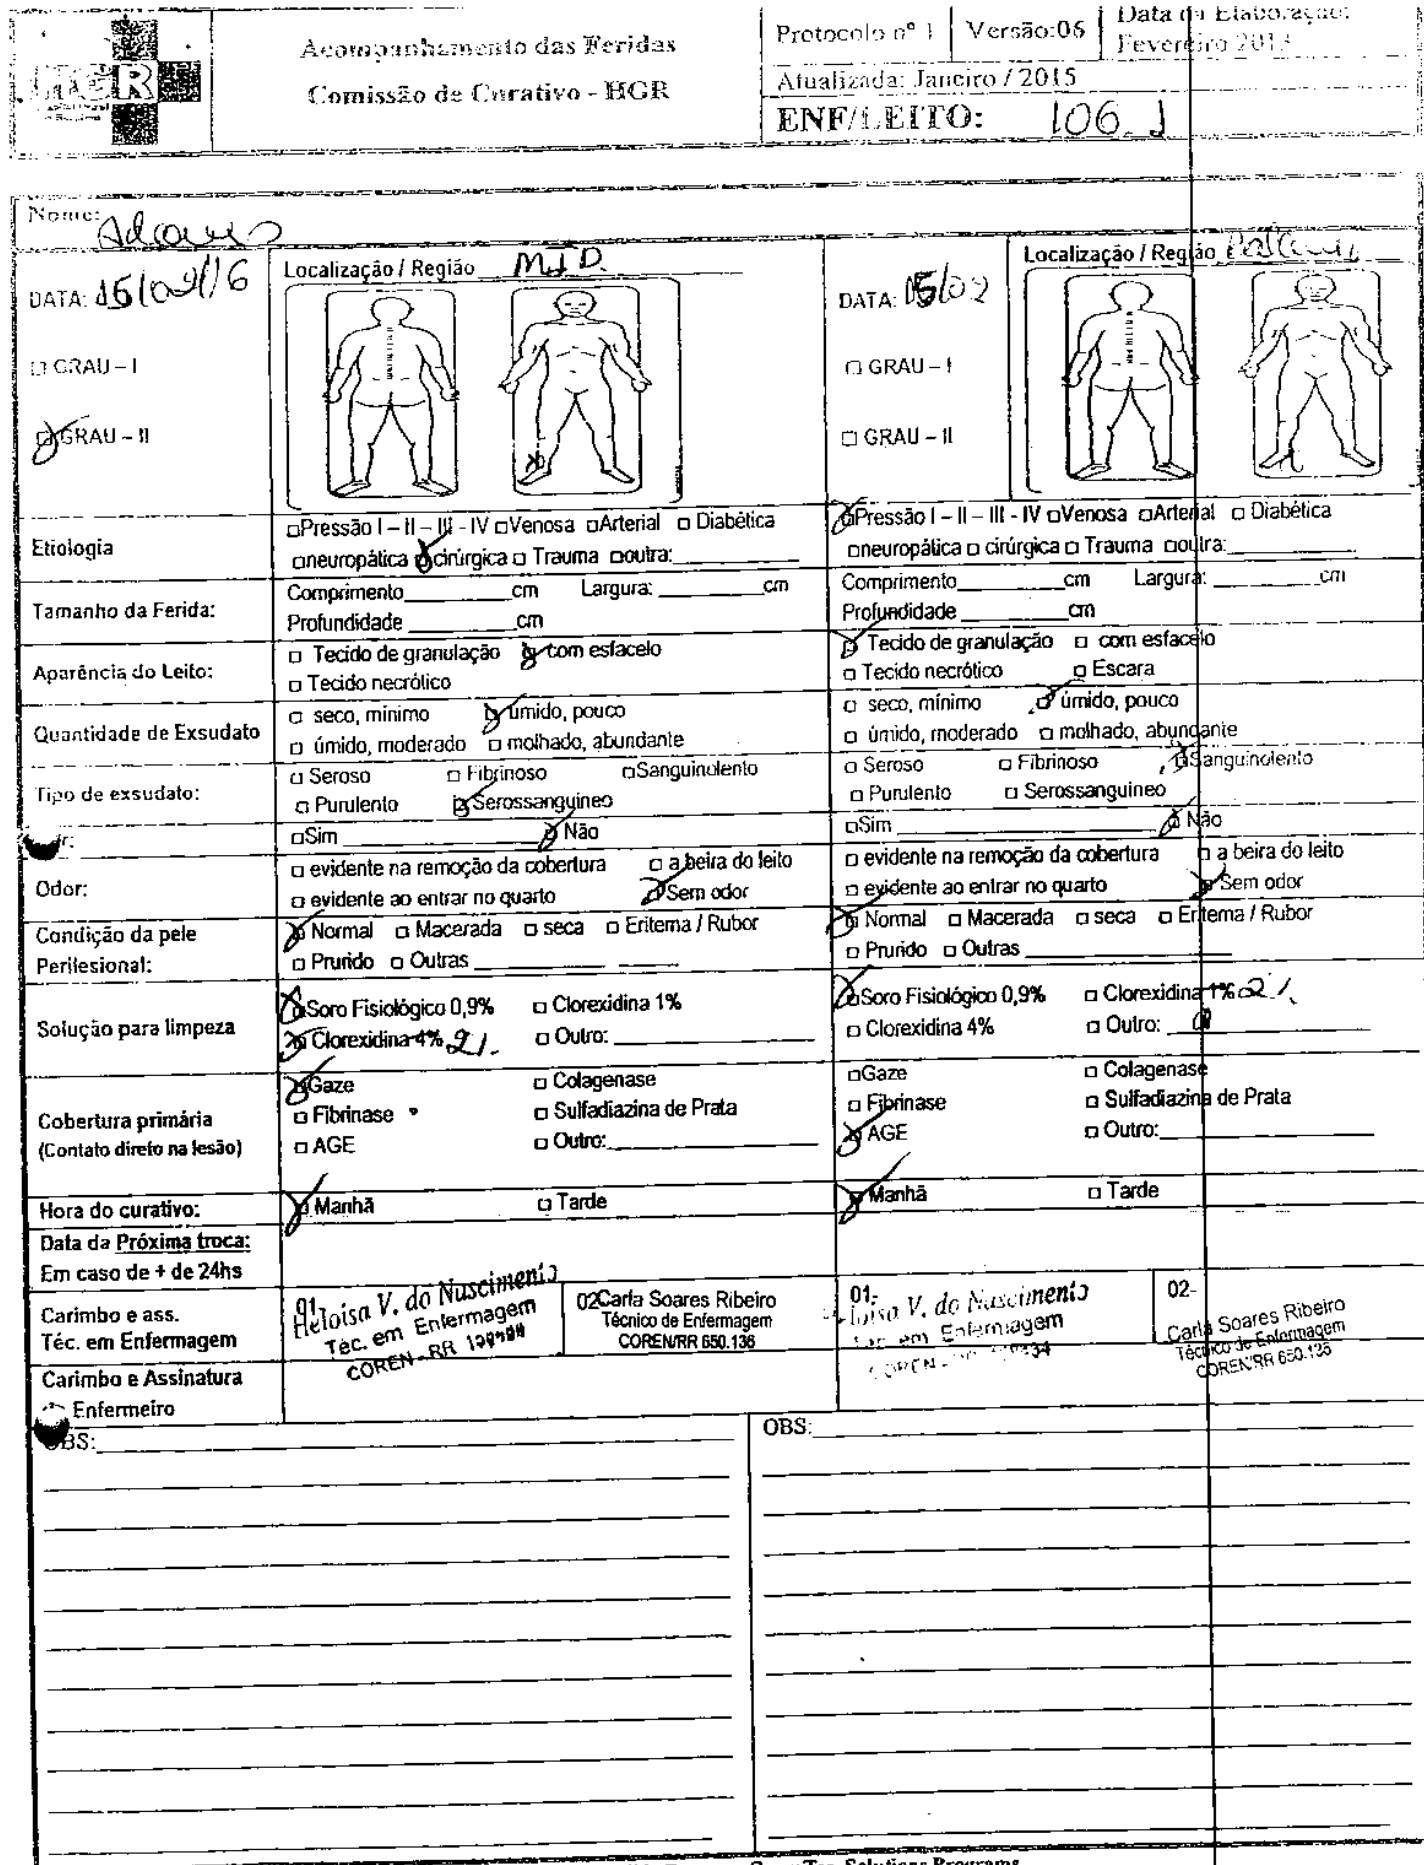 HGR
Acompanhamento das Feridas
Comissão de Curativo - HGR
Protocolo nº 1 Versão:06 Data da Elaboração: Fevereiro 2013
Atualizada: Janeiro / 2015
ENF/LEITO: 106 1
Nome:
DATA: 15/02/16
Localização / Região MID
DATA: 15/02
Localização / Região
□ GRAU – I
□ GRAU – I
□ GRAU – II
□ GRAU – II
Etiologia
□Pressão I – II – III - IV □Venosa □Arterial □ Diabética
□neuropática □ cirúrgica □ Trauma □outra:
□Pressão I – II – III - IV □Venosa □Arterial □ Diabética
□neuropática □ cirúrgica □ Trauma □outra:
Tamanho da Ferida:
Comprimento__________cm Largura: __________cm
Profundidade __________cm
Comprimento__________cm Largura: __________cm
Profundidade __________cm
Aparência do Leito:
□ Tecido de granulação □ com esfacelo
□ Tecido necrólico
□ Tecido de granulação □ com esfacelo
□ Tecido necrótico □ Escara
Quantidade de Exsudato
□ seco, mínimo □ úmido, pouco
□ úmido, moderado □ molhado, abundante
□ seco, mínimo □ úmido, pouco
□ úmido, moderado □ molhado, abundante
Tipo de exsudato:
□ Seroso □ Fibrinoso □Sanguinolento
□ Purulento □ Serossanguineo
□ Seroso □ Fibrinoso □Sanguinolento
□ Purulento □ Serossanguineo
□Sim __________ □ Não
□Sim __________ □ Não
Odor:
□ evidente na remoção da cobertura □ a beira do leito
□ evidente ao entrar no quarto □ Sem odor
□ evidente na remoção da cobertura □ a beira do leito
□ evidente ao entrar no quarto □ Sem odor
Condição da pele
Perilesional:
□ Normal □ Macerada □ seca □ Eritema / Rubor
□ Prurido □ Outras
□ Normal □ Macerada □ seca □ Eritema / Rubor
□ Prurido □ Outras
Solução para limpeza
□Soro Fisiológico 0,9% □ Clorexidina 1%
□ Clorexidina 4% 2%. □ Outro:
□Soro Fisiológico 0,9% □ Clorexidina 1% 2%
□ Clorexidina 4% □ Outro:
Cobertura primária
(Contato direto na lesão)
□Gaze □ Colagenase
□ Fibrinase □ Sulfadiazina de Prata
□ AGE □ Outro:
□Gaze □ Colagenase
□ Fibrinase □ Sulfadiazina de Prata
□ AGE □ Outro:
Hora do curativo:
□ Manhã □ Tarde
□ Manhã □ Tarde
Data da Próxima troca:
Em caso de + de 24hs
Carimbo e ass.
Téc. em Enfermagem
01-
Heloisa V. do Nascimento
Téc. em Enfermagem
COREN-RR
02Carla Soares Ribeiro
Técnico de Enfermagem
COREN/RR 650.136
01-
V. do Nascimento
em Enfermagem
COREN
02-
Carla Soares Ribeiro
Técnico de Enfermagem
COREN/RR 650.136
Carimbo e Assinatura
Enfermeiro
OBS:
OBS: